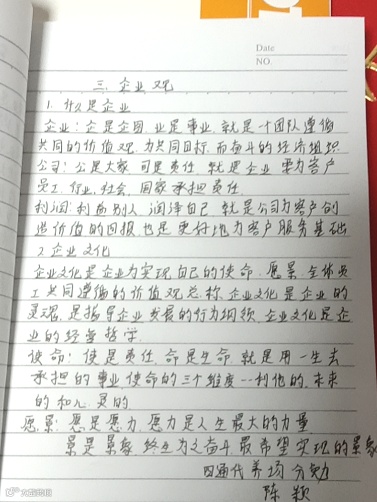 Date
NO.
三、企业观
1. 什么是企业
企业:企是企图,业是事业,就是一个团队遵循
共同的价值观,为共同目标,而奋斗的经济组织
公司:公是大家,司是责任,就是企业要为客户
员工、行业、社会、国家承担责任.
利润:利益别人,润泽自己,就是公司为客户创
造价值的回报,也是更好地为客户服务基础
2. 企业文化
企业文化是企业为实现自己的使命、愿景,全体员
工共同遵循的价值观总称,企业文化是企业的
灵魂,是指导企业发展的行为纲领,企业文化是企
业的经营哲学.
使命:使是责任,命是生命,就是用一生去
承担的事业,使命的三个维度--利他的、未来
的和灵的
愿景:愿是愿力,愿力是人生最大的力量
景是景象,终生为之奋斗,最希望实现的景象
四通代 分勉
陈颖